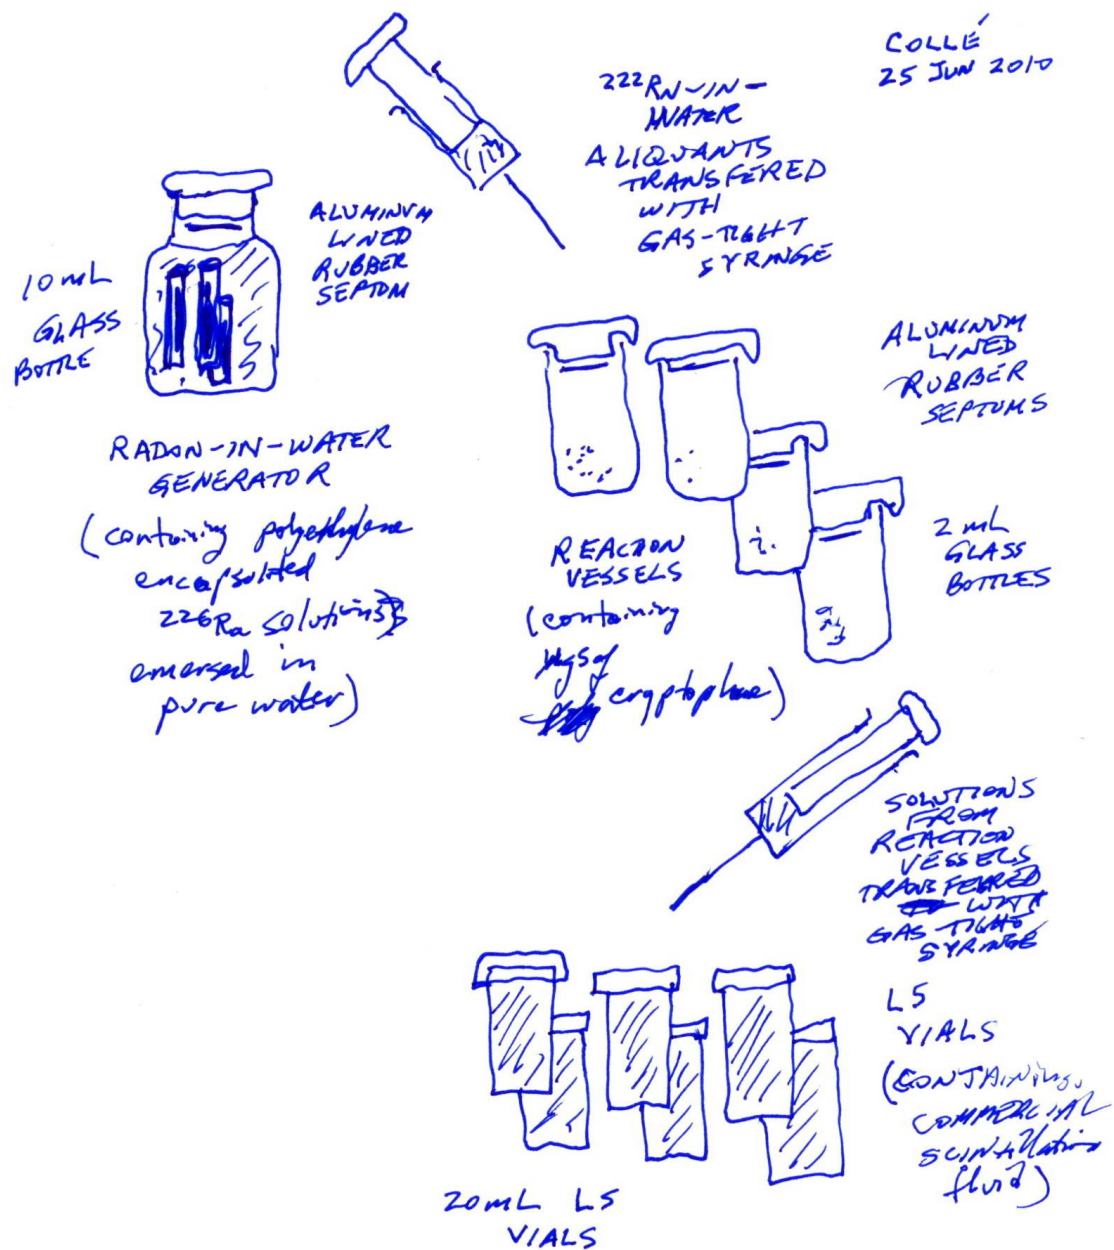 COLLÉ
25 JUN 2010
222RN-IN-
WATER
ALIQUANTS
TRANSFERED
WITH
GAS-TIGHT
SYRINGE
ALUMINUM
LINED
RUBBER
SEPTUM
10 mL
GLASS
BOTTLE
RADON-IN-WATER
GENERATOR
(containing polyethylene
encapsulated
226Ra solutions
emersed in
pure water)
ALUMINUM
LINED
RUBBER
SEPTUMS
2 mL
GLASS
BOTTLES
REACTION
VESSELS
(containing
cryptophane)
SOLUTIONS
FROM
REACTION
VESSELS
TRANSFERRED
WITH
GAS-TIGHT
SYRINGE
LS
VIALS
(CONTAINING
COMMERCIAL
SCINTillation
fluid)
20 mL LS
VIALS